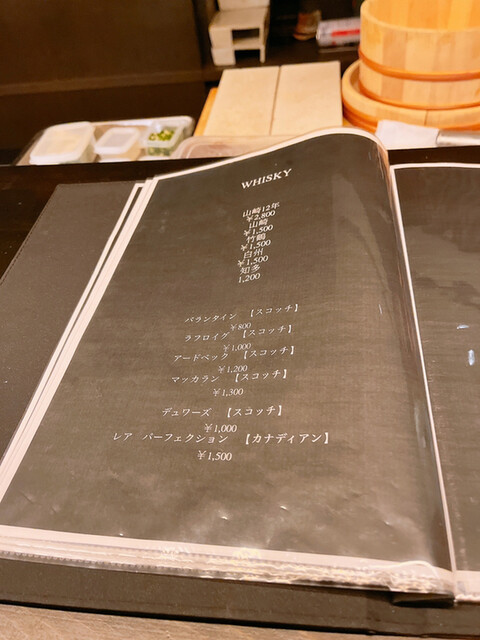 WHISKY
山崎12年
¥2,800
山崎
¥1,500
竹鶴
¥1,500
白州
¥1,500
知多
1,200
バランタイン 【スコッチ】
¥800
ラフロイグ 【スコッチ】
¥1,000
アードベック 【スコッチ】
¥1,200
マッカラン 【スコッチ】
¥1,300
デュワーズ 【スコッチ】
¥1,000
レア パーフェクション 【カナディアン】
¥1,500